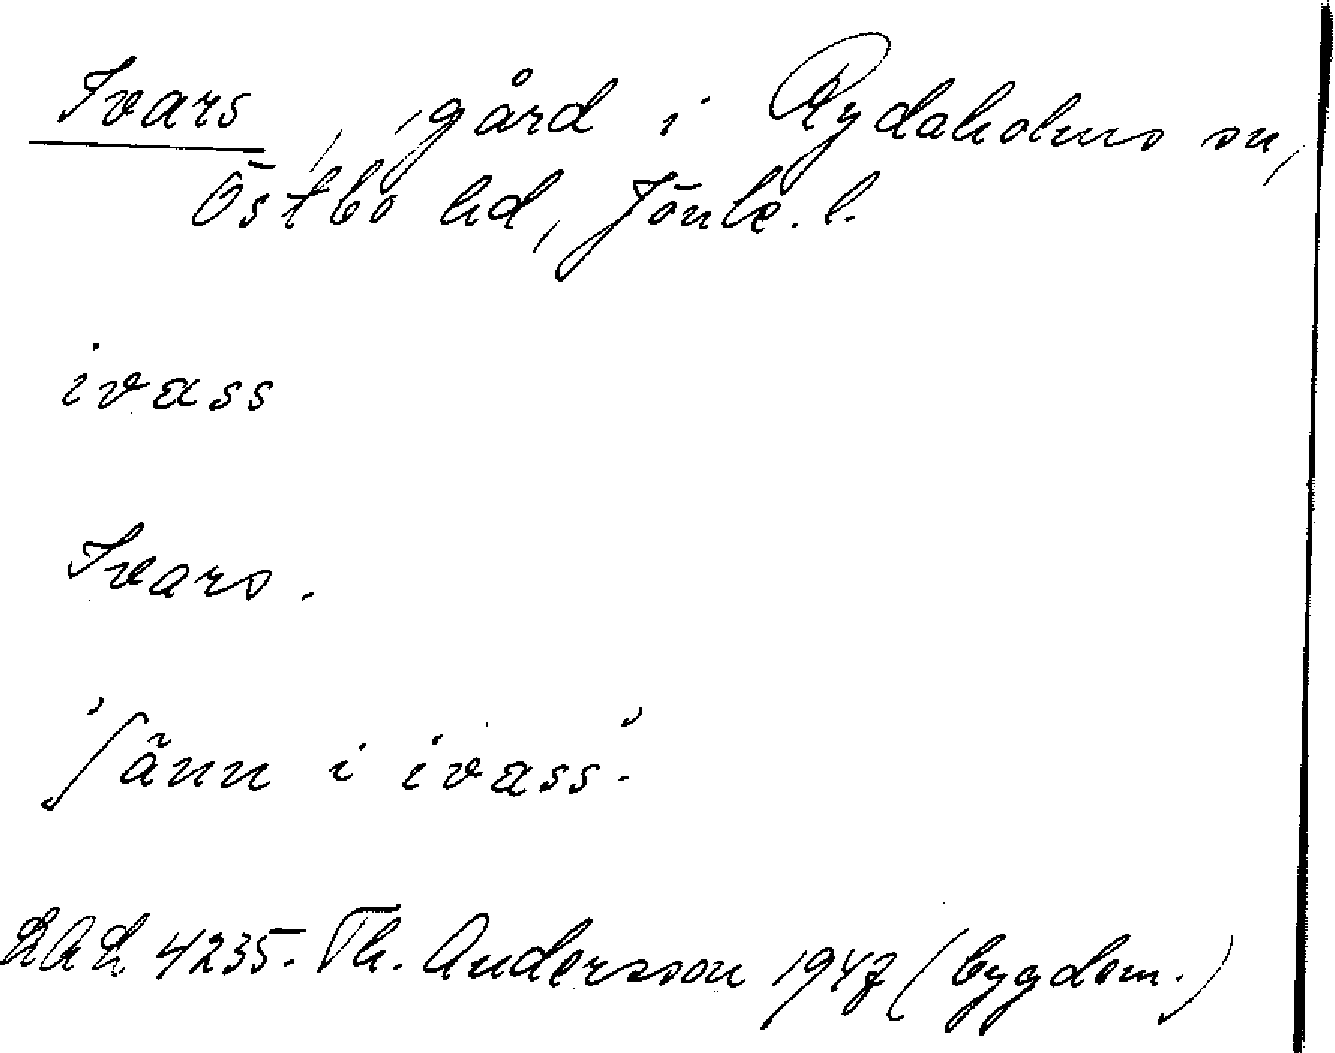 Ivars, gård i Rydaholms sn,
Östbo hd, Jönk. l.
ivass
Ivars.
"sänn i ivass".
LAL 4235. Th. Andersson 1947 (bygdem.)